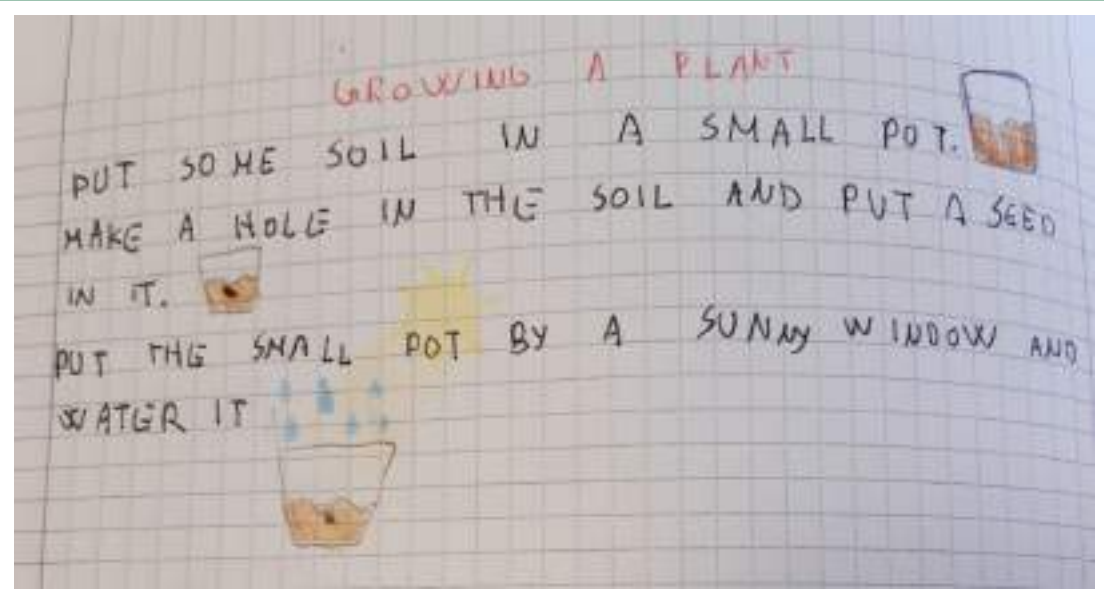 GROWING A PLANT
PUT SOME SOIL IN A SMALL POT.
MAKE A HOLE IN THE SOIL AND PUT A SEED
IN IT.
PUT THE SMALL POT BY A SUNNY WINDOW AND
WATER IT